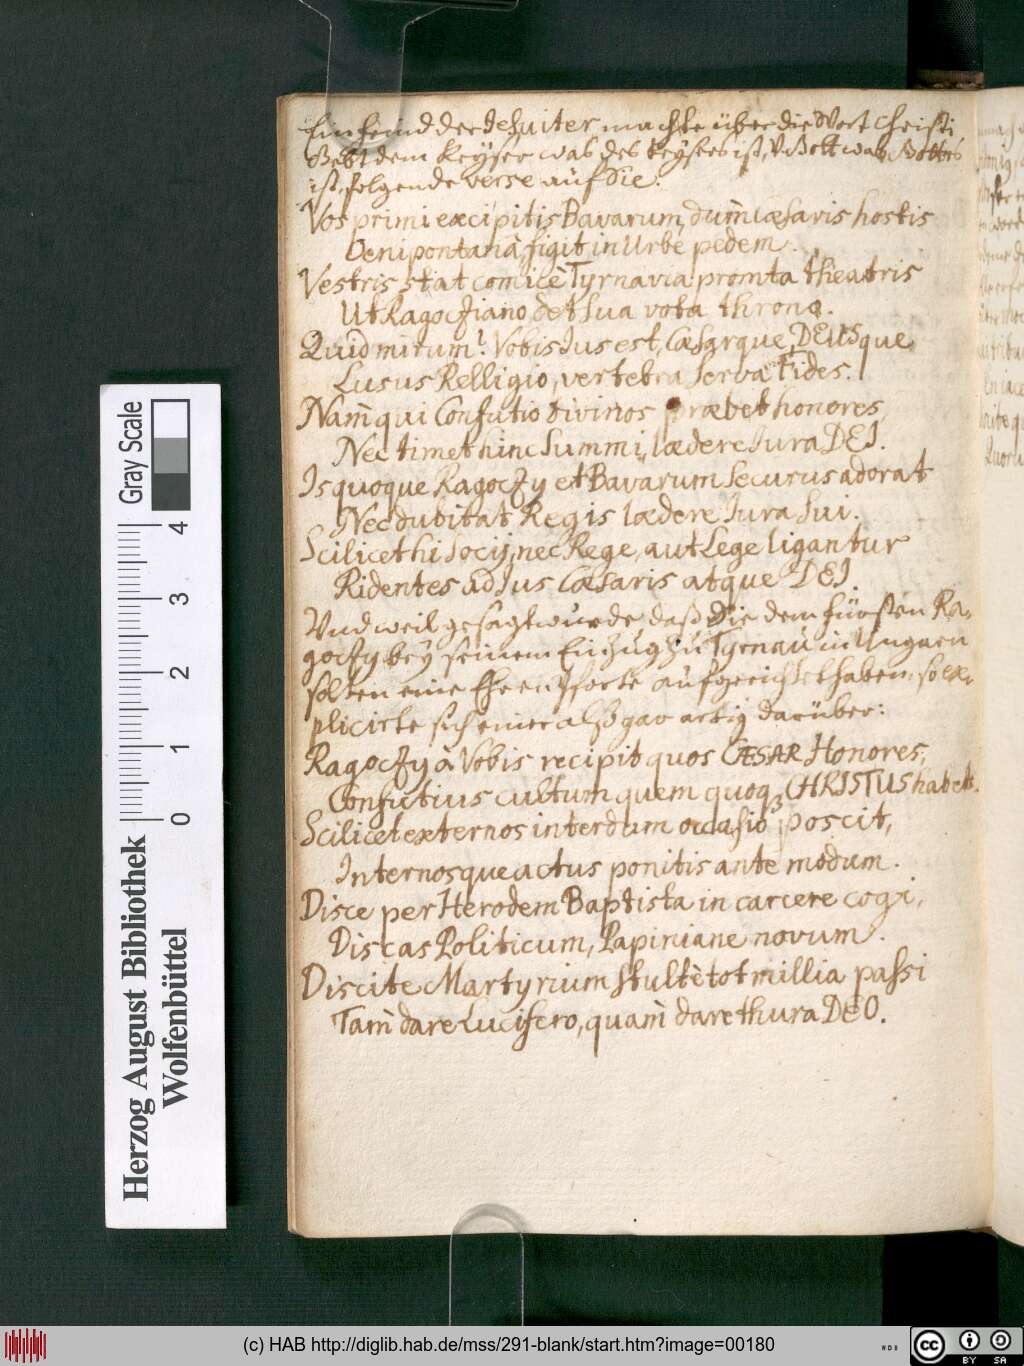 Ein feind der Jesuiter machte über die Wort Christi
Gebt dem Keyser was des Keysers ist, V Gott was Gottes
ist, folgende verse auf Sie:
Vos primi excipitis Bavarum, dum̀ Cæsaris hostis
Oenipontanâ, figit in Urbe pedem.
Vestris stat comicè Tyrnavia promta theatris
Ut Ragocziano det sua vota throno.
Quid mirum? Vobis Jus est, Cæsarque, DEUSque
Lusus Relligio, vertebra serva Fides.
Nam̀ qui Confutio divinos præbet honores,
Nec timet hinc Summi, lædere Jura DEI.
Is quoque Ragoczy et Bavarum securus adorat
Nec dubitat Regis lædere Jura sui.
Scilicet hi Socij, nec Rege, aut Lege ligantur
Ridentes ad Jus Cæsaris atque DEI.
Und weil gesagt wurde daß die dem Fürsten Ra-
goczy bey seinem Einzug zu Tyrnau in Ungarn
solten eine Ehrenpforte aufgerichtet haben, so ex-
plicirte sich einer alß gar artig darüber:
Ragoczy à Vobis recipit quos CÆSAR Honores,
Confutius cultum quem quoq₃ CHRISTUS habet.
Scilicet externos interdum occasio poscit,
Internosque actus ponitis ante modum.
Disce per Herodem Baptista in carcere cogi,
Discas Politicum, Papiniane novum.
Discite Martyrium stultè tot millia passi
Tam̀ dare Lucifero, quam̀ dare thura DEO.
Herzog August Bibliothek
Wolfenbüttel
Gray Scale
0 1 2 3 4
(c) HAB http://diglib.hab.de/mss/291-blank/start.htm?image=00180
WDB
cc BY SA